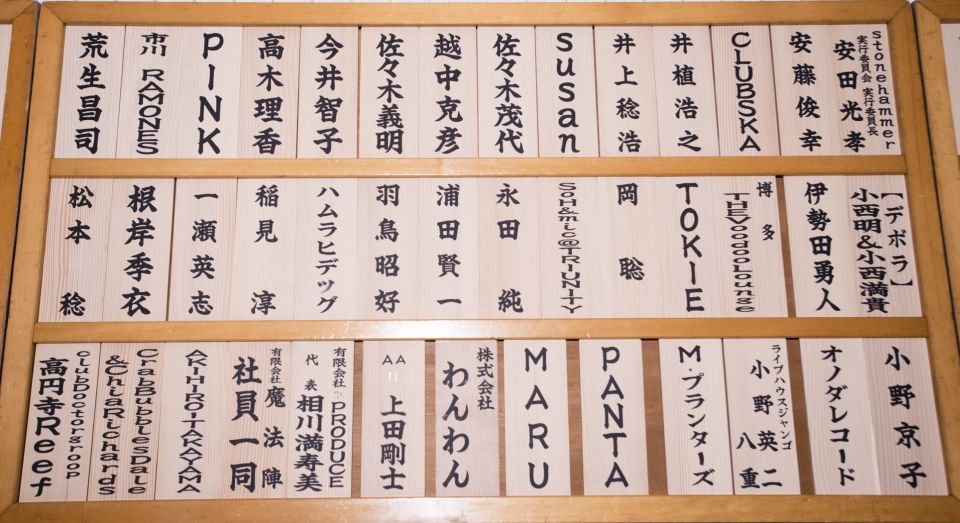 stonehammer
実行委員会 実行委員長
安田光孝
安藤俊幸
CLUBSKA
井植浩之
井上稔浩
susan
佐々木茂代
越中克彦
佐々木義明
今井智子
高木理香
PINK
市川 RAMONES
荒生昌司
【デボラ】
小西明&小西満貴
伊勢田勇人
博多
THEVoodooLounge
TOKIE
岡聡
SOH&mic@TRIUNITY
永田純
浦田賢一
羽鳥昭好
ハムラヒデッグ
稲見淳
一瀬英志
根岸季衣
松本稔
小野京子
オノダレコード
ライブハウスジャンゴ
小野英二
八重
M・プランターズ
PANTA
MARU
株式会社
わんわん
AA
上田剛士
有限会社 PRODUCE
代表 相川満寿美
有限会社 魔法陣
社員一同
AKIHIROITAKAYAMA
CrabBubblesDale
&ChiaRichards
clubDoctorgroop
高円寺Reef